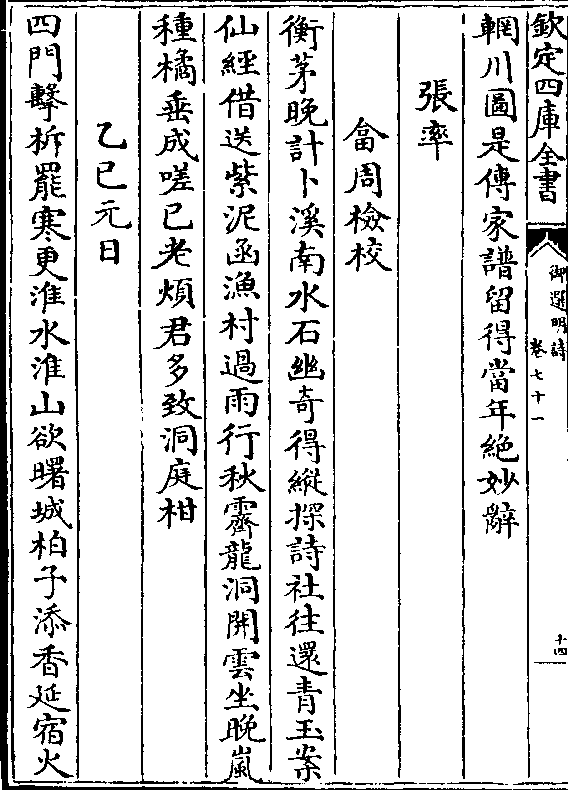 欽定四庫全書
御選明詩
卷七十一
十四
輞川圖是傳家譜留得當年絶妙辭
張率
畣周檢校
衡茅晚計卜溪南水石幽奇得縱探詩社往還青玉案
仙經借送紫泥函漁村過雨行秋霽龍洞開雲坐晚嵐
種橘垂成嗟已老煩君多致洞庭柑
乙巳元日
四門擊柝罷寒更淮水淮山欲曙城柏子添香延宿火